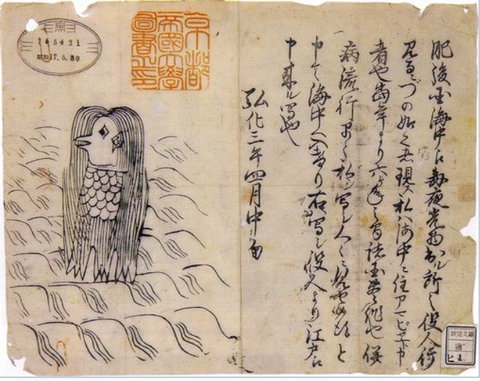 肥後国海中江毎夜光物出ル所之役人行
見るニづの如く者現ス私ハ海中ニ住アマビヱト申
者也當年より六ヶ年之間諸国豊作也併
病流行早々私ヲ写シ人々ニ見セ候得と
申て海中へ入けり右写シ役人より江戸江
申来ル写也
弘化三年四月中旬
京都
帝國大學
圖書之印